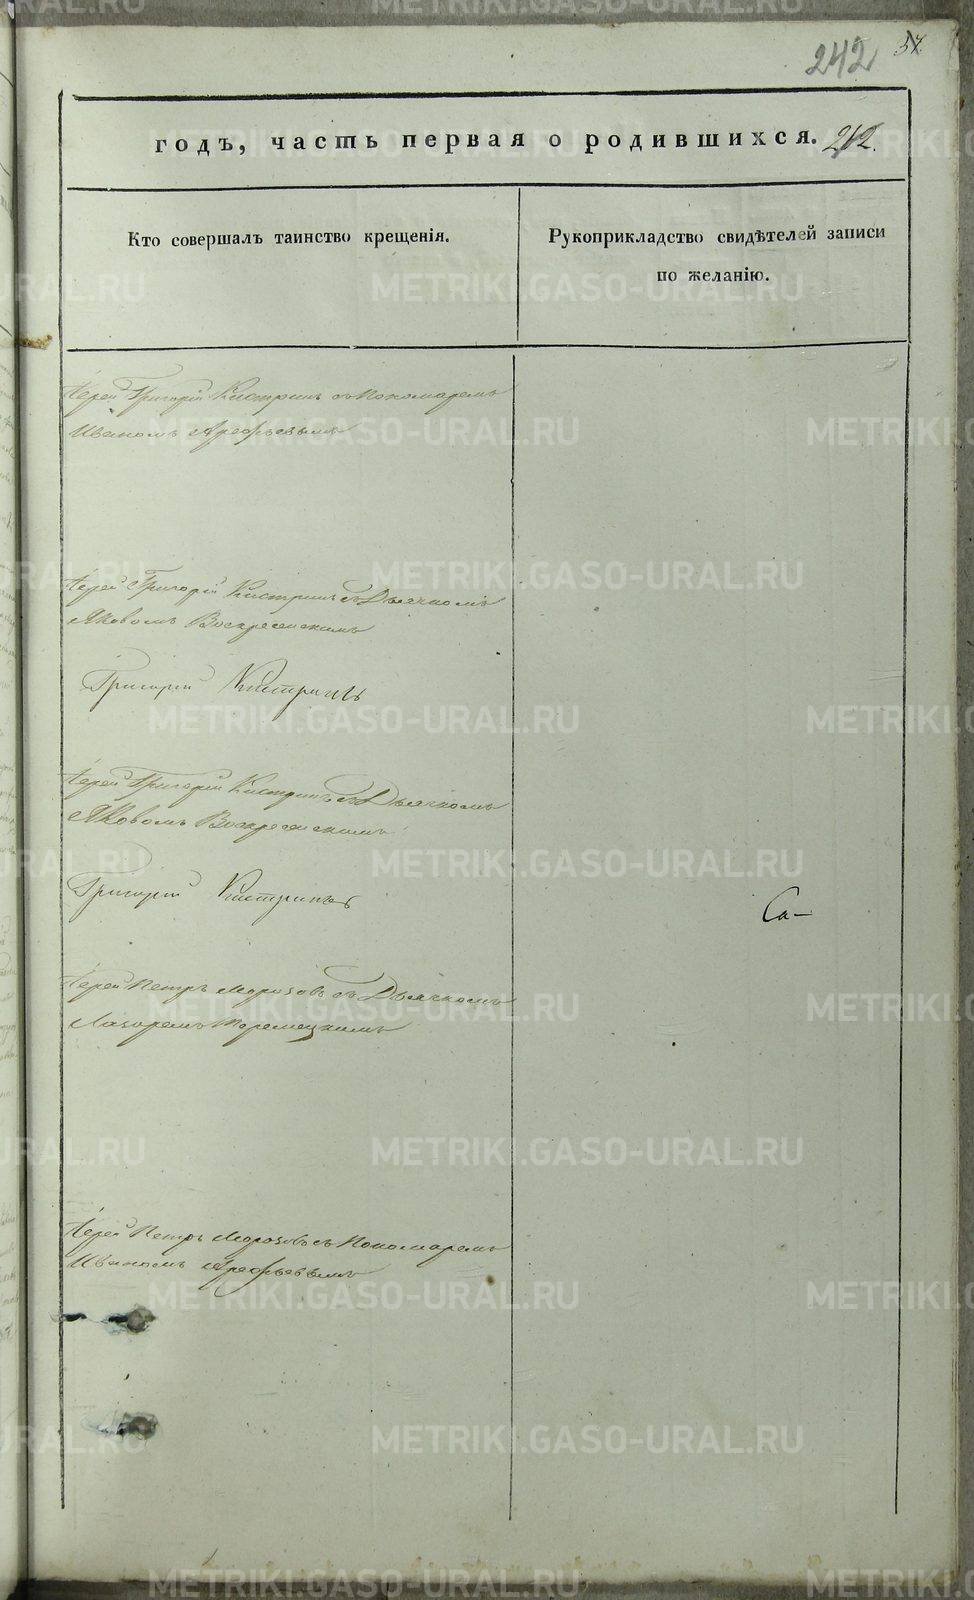 242 57
годъ, часть первая о родившихся. 212.
Кто совершалъ таинство крещенія.
Рукоприкладство свидѣтелей записи
по желанію.
Іерей Григорій Кистринъ съ Пономаремъ
Иваномъ Арефьевымъ
Іерей Григорій Кистринъ съ Дьячкомъ
Яковомъ Воскресенскимъ
Григорій Кистринъ
Іерей Григорій Кистринъ съ Дьячкомъ
Яковомъ Воскресенскимъ
Григорій Кистринъ
Са-
Іерей Петръ Морозовъ съ Дьячкомъ
Лазаремъ
Іерей Петръ Морозовъ съ Пономаремъ
Иваномъ Арефьевымъ
METRIKI.GASO-URAL.RU